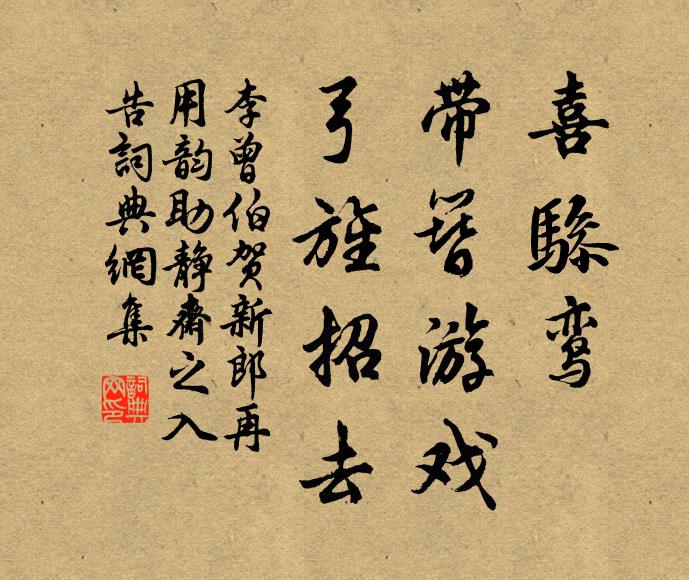 喜骖鸾
带簪游戏
弓旌招去
李曾伯贺新郎再
用韵助静斋之入
告詞典網集
詞典网印